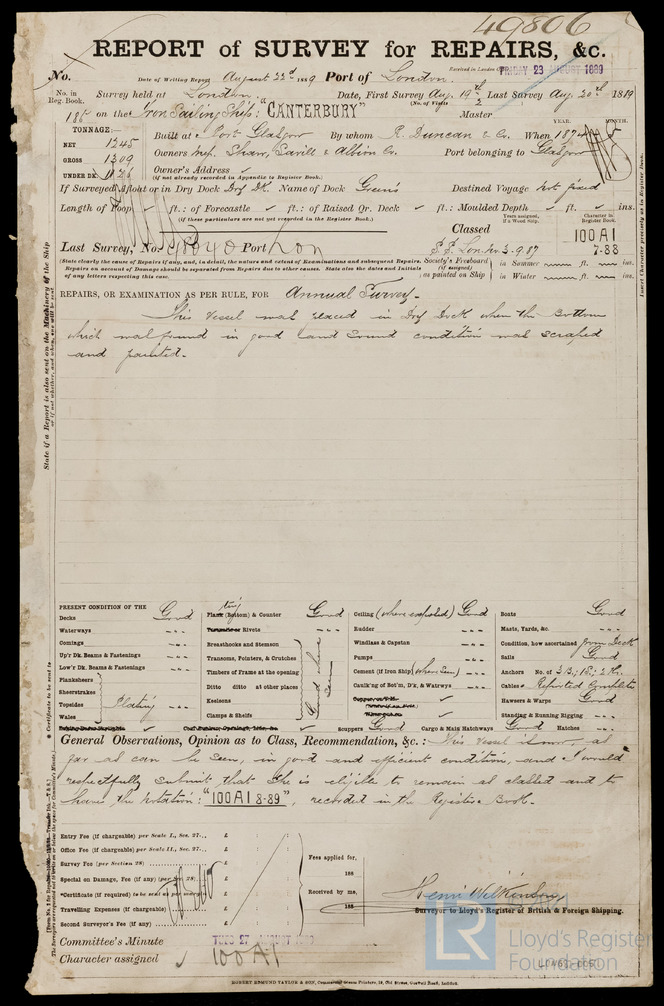 49806
REPORT of SURVEY for REPAIRS, &c.
No. Date of Writing Report August 22d 1889 Port of London. Received in London FRIDAY 23 AUGUST 1889
No. in Reg. Book. Survey held at London. Date, First Survey Aug. 19th Last Survey Aug. 20th 1889
(No. of Visits 2
186 on the Iron Sailing Ship: "CANTERBURY" Master
TONNAGE:— YEAR. MONTH.
NET 1245 Built at Port Glasgow By whom R. Duncan & Co. When 1874
GROSS 1309 Owners Mess. Shaw, Savill & Albion Co. Port belonging to Glasgow
UNDER DK. Owner's Address
(if not already recorded in Appendix to Register Book.)
If Surveyed Afloat or in Dry Dock Dry Dk. Name of Dock Green's Destined Voyage Not fixed
Length of Poop ft.: of Forecastle ft.: of Raised Qr. Deck ft.: Moulded Depth ft. ins.
(if these particulars are not yet recorded in the Register Book.) Years assigned, if a Wood Ship. Character in Register Book.
Classed 100A1
Last Survey, No. 48040 Port Lon S.S. Lon. No. 3-9.87 7-88
(State clearly the cause of Repairs if any, and, in detail, the nature and extent of Examinations and subsequent Repairs. Society's Freeboard in Summer ft. ins.
Repairs on account of Damage should be separated from Repairs due to other causes. State also the dates and Initials (if assigned)
of any letters respecting this case. as painted on Ship in Winter ft. ins.
REPAIRS, OR EXAMINATION AS PER RULE, FOR Annual Survey.
This Vessel was placed in Dry Dock when the bottom
which was found in good and sound condition was scraped
and painted.
PRESENT CONDITION OF THE
Decks Good Plating (Bottom) & Counter Good Ceiling (where exposed) Good Boats Good
Waterways Rivets Rudder Masts, Yards, &c.
Comings Breasthooks and Stemson Windlass & Capstan Condition, how ascertained from Deck
Up'r Dk. Beams & Fastenings Transoms, Pointers, & Crutches Pumps Sails Good
Low'r Dk. Beams & Fastenings Timbers of Frame at the opening Cement (if Iron Ship) (where seen) Anchors No. of 3 B; 1 S; 2 K.
Planksheers Ditto ditto at other places Caulk'ng of Bot'm, D'k, & Waterways Cables Reported Complete
Sheerstrakes Keelsons Hawsers & Warps Good
Topsides Plating Clamps & Shelfs Good where seen Standing & Running Rigging
Wales Scuppers Good Cargo & Main Hatchways Good Hatches
General Observations, Opinion as to Class, Recommendation, &c.: This vessel is now, as
far as can be seen, in good and efficient condition, and I would
respectfully submit that she is eligible to remain as classed and to
have the notation: "100A1 8-89", recorded in the Register Book.
Entry Fee (if chargeable) per Scale I., Sec. 27... £
Office Fee (if chargeable) per Scale II., Sec. 27... £
Survey Fee (per Section 28) £
Special on Damage, Fee (if any) (per Sec. 28) £
*Certificate (if required) to be sent as per margin £
Travelling Expenses (if chargeable) £
Second Surveyor's Fee (if any) £
Fees applied for,
188
Received by me,
188
Henri Wilkinson
Surveyor to Lloyd's Register of British & Foreign Shipping.
Committee's Minute TUES 27 AUGUST 1889
Character assigned 100A1
LR Lloyd's Register Foundation
ROBERT EDMUND TAYLOR & SON, Commercial Steam Printers, 19, Old Street, Goswell Road, London.